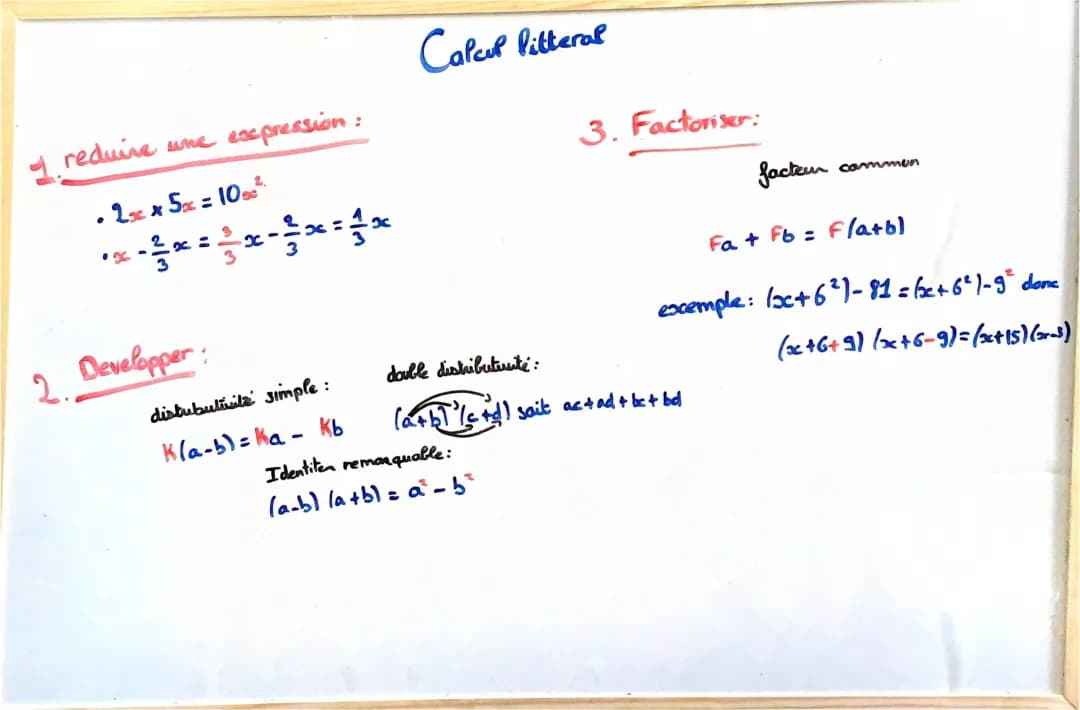 Calcul litteral
1. reduire une expression :
• 2x × 5x = 10x²
• x - 2/3 x = 3/3 x - 2/3 x = 1/3 x
2. Developper :
distributivité simple :
K(a-b) = Ka - Kb
double distributivité :
(a+b) (c+d) soit ac+ad+bc+bd
Identiter remarquable :
(a-b) (a+b) = a² - b²
3. Factoriser :
facteur common
Fa + Fb = F(a+b)
exemple : (x+6²) - 81 = (x+6²) - 9² donc
(x+6+9) (x+6-9) = (x+15) (x-3)